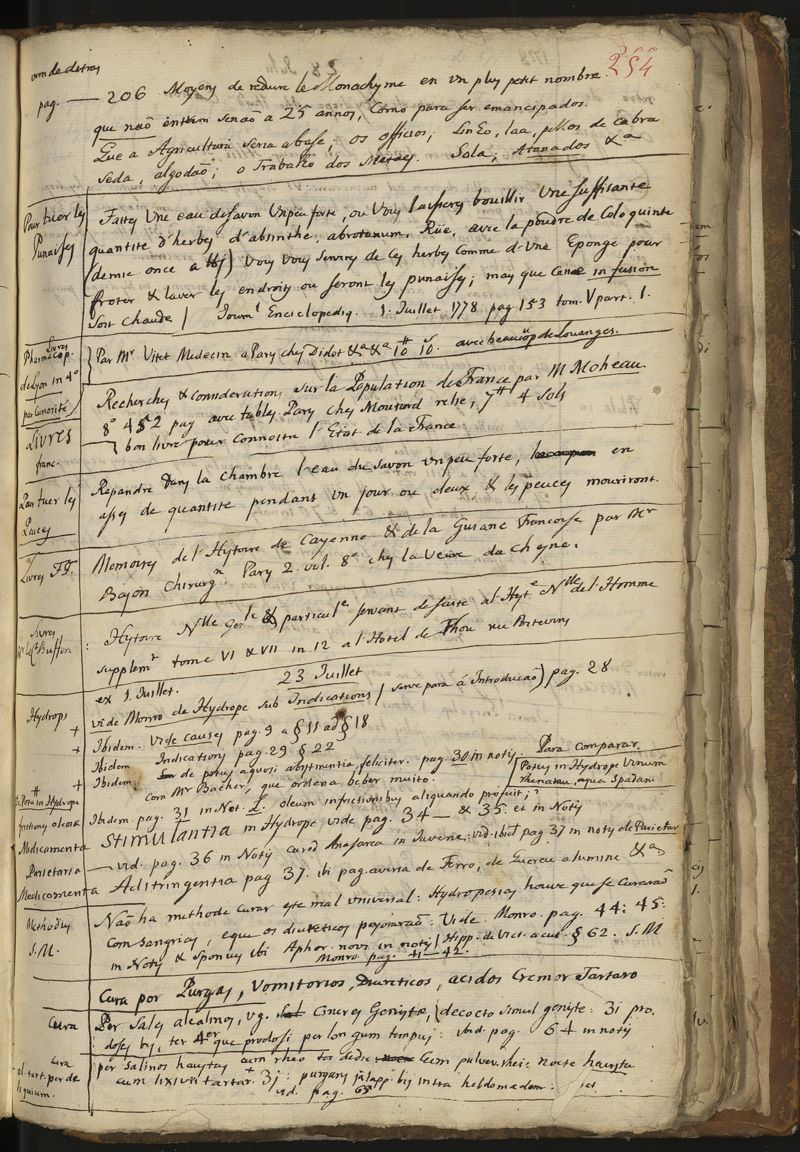 254
pag. — 206 Moyens de reduire le Monachyme en un plus petit nombre.
que naõ entrem senaõ a 25 annos, como para ser emancipados.
Que a Agricultura seria a base; os officios; Linho, laa, pellos de cabra
seda, algodaõ; o Trabalho dos Metaes. Sola; Atanados &a
Pour tuer les Punaises
Faites Une eau de savon Un peu forte, ou Vous laisserez bouillir Une suffisante
quantite d'herbes d'absinthe, abrotanum, Rüe, avec la poudre de Coloquinte
(demie once a ) Vous Vous servirez de ces herbes comme d'Une Eponge pour
froter & laver les endroits ou seront les punaises; mais que cette infusion
soit chaude / Journl Enciclopediq. 1. Juillet 1778 pag. 153 tom. V part. 1.
Livres
Pharmacop.
de Lyon in 4°
par Curiosité
Par Mr Vitet Medecin a Pary chez Didot &a &a 10 10 s. avec beaucoup de Louanges.
Livres
franc.
Recherches & considerations sur la Population de France par M Moheau.
8° 452 pag avec tables Pary chez Moutard relié, 7 4 sols
bon livre pour connoitre l'Etat de la France
Par tuer les
Puces
Repandre dans la chambre l'eau du savon Un peu forte, en
assez de quantite pendant un jour ou deux & les puces mouriront.
Livres FF.
Memoires de l'Hystoire de Cayenne & de la Guiane Francoise par Mr
Bajon Chirurgn Pary 2 vol. 8° chez la Veuve du Chesne.
Livres
Mr le Cte Buffon
Hytoire Nlle Genle & particule servant de suite a l'Hyte Nlle de l'Homme
supplemt tome VI & VII in 12 a l'Hotel de Thou rue Poitevins
ex 1 Juillet. 23 Juillet
Hydrops
vide Monro de Hydrope sub Indications / serve para a Introducaõ) pag. 28
+ Ibidem. vide causes pag. 9 a § 11 ad § 18
+ Ibidem Indications pag. 29 § 22
+ Ibidem: de potus aquosi abstinentia, feliciter. pag. 30 in notis. Para comparar.
Com Mr Bacher, que ordena beber muito. Potus in Hydrope Vinum
Rhenanum, aqua Spadan.
De Potu in Hydrope
frictiones oleosae Ibidem. pag. 31 in Not. L. oleum in frictionibus aliquando profuit;
Medicamenta Stimulantia in Hydrope vide pag. 34 — & 35 et in Notis
Parietaria — vid. pag. 36 in Notis cured Anasarca in Juvene: vid. ibid pag 37 in notis de Parietar
Medicamenta Adstringentia pag 37. ibi pag. averia de Ferro, de Quercu alumine &a
Methodus
S. M.
Naõ ha methodo curar este mal universal: Hydropesias houve que se curaraõ
com sangrias, e que os diureticos pejoraraõ: Vide Monro. pag. 44: 45:
in Notis & sponus ibi Aphor. novi. in notis / Hipp. de Vict. acut. § 62. S. M
Monro. pag. 41—42.
Cura por Purgas, Vomitorios, Diureticos, acidos Cremor Tartaro
Cura
Per Sales alcalinos, v.g. Cineres Genistæ, (decocto simul geniste: 3i pro
dosi bis, ter 4er que prodosi per longum tempus: vid. pag. 64 in notis
cura
ol. tart. per de
liquium.
per salinos haustus cum rheo ter de die cum pulver. rhei: nocte haustu
cum lixivii tartar. 3j: purgans jalapp. bis intra hebdomadem.
vid. pag. 65